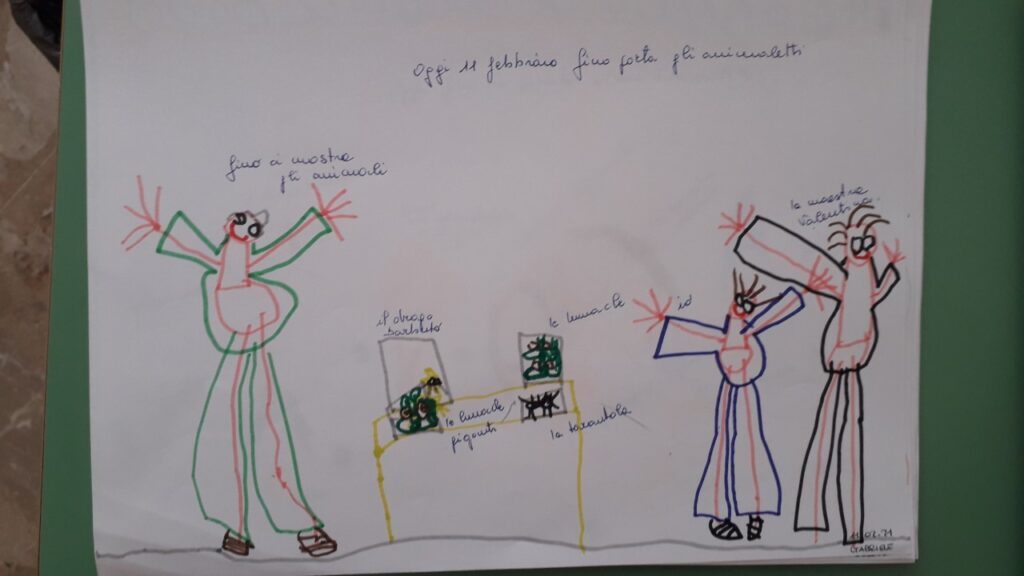 Oggi 11 febbraio Gino porta gli animaletti
Gino ci mostra
gli animali
la maestra
Valentina
il drago
barbuto
le lumache
io
le lumache
giganti
la tarantola
11.02.21
GABRIELE